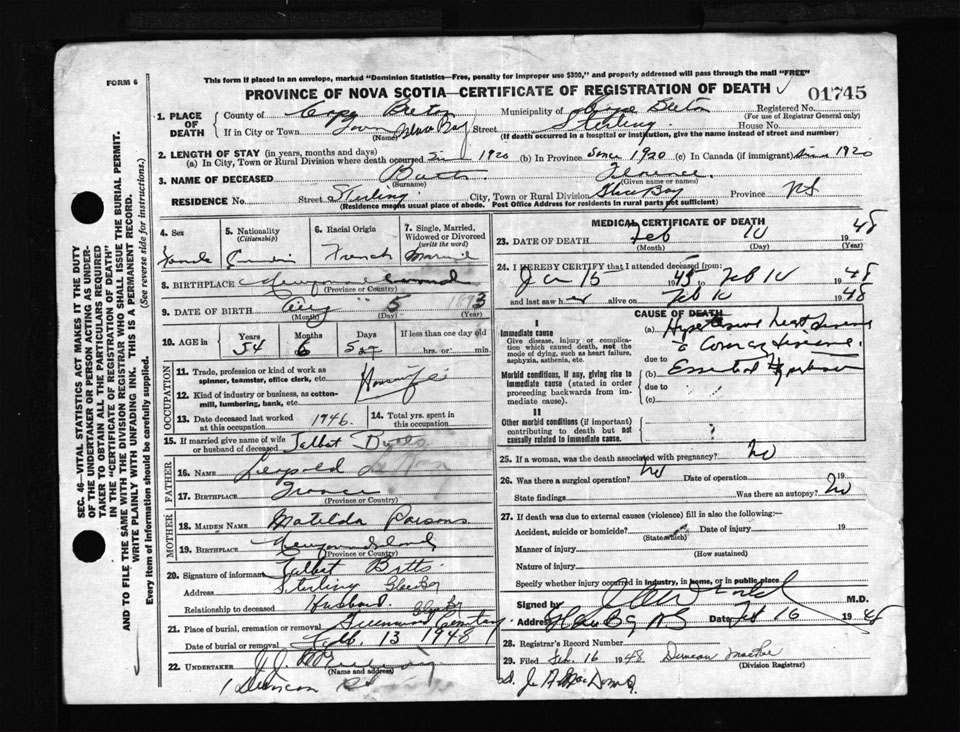 This form if placed in an envelope, marked "Dominion Statistics—Free, penalty for improper use $300," and properly addressed will pass through the mail "FREE"
FORM 6
PROVINCE OF NOVA SCOTIA—CERTIFICATE OF REGISTRATION OF DEATH
01745
SEC. 46—VITAL STATISTICS ACT MAKES IT THE DUTY
OF THE UNDERTAKER OR PERSON ACTING AS UNDER-
TAKER TO OBTAIN ALL THE PARTICULARS REQUIRED
IN THE "CERTIFICATE OF REGISTRATION OF DEATH"
AND TO FILE THE SAME WITH THE DIVISION REGISTRAR WHO SHALL ISSUE THE BURIAL PERMIT.
WRITE PLAINLY WITH UNFADING INK. THIS IS A PERMANENT RECORD.
Every item of Information should be carefully supplied. (See reverse side for instructions.)
1. PLACE OF DEATH
County of Cape Breton Municipality of Cape Breton Registered No.
(For use of Registrar General only)
If in City or Town Glace Bay Street Sterling House No.
(Name) (If death occurred in a hospital or institution, give the name instead of street and number)
2. LENGTH OF STAY (in years, months and days)
(a) In City, Town or Rural Division where death occurred 1920 (b) In Province Since 1920 (c) In Canada (if immigrant) Since 1920
3. NAME OF DECEASED Butts Florence
(Surname) (Given name or names)
RESIDENCE No. Street Sterling City, Town or Rural Division Glace Bay Province NS
(Residence means usual place of abode. Post Office Address for residents in rural parts not sufficient)
4. Sex
Female
5. Nationality
(Citizenship)
Canadian
6. Racial Origin
French
7. Single, Married, Widowed or Divorced
(write the word)
Married
8. BIRTHPLACE
(Province or Country)
9. DATE OF BIRTH Aug 5 1893
(Month) (Day) (Year)
10. AGE in Years Months Days If less than one day old
54 6 5 hrs. or min.
OCCUPATION
11. Trade, profession or kind of work as spinner, teamster, office clerk, etc. Housewife
12. Kind of industry or business, as cotton-mill, lumbering, bank, etc.
13. Date deceased last worked at this occupation 1946
14. Total yrs. spent in this occupation
15. If married give name of wife or husband of deceased Talbot Butts
FATHER
16. NAME Leopold
17. BIRTHPLACE France
(Province or Country)
MOTHER
18. MAIDEN NAME Matilda Parsons
19. BIRTHPLACE
(Province or Country)
20. Signature of informant Talbot Butts
Address Sterling Glace Bay
Relationship to deceased Husband
21. Place of burial, cremation or removal Greenwood Cemetary Glace Bay
Date of burial or removal Feb. 13 1948
22. UNDERTAKER
(Name and address)
Duncan
MEDICAL CERTIFICATE OF DEATH
23. DATE OF DEATH Feb 10 1948
(Month) (Day) (Year)
24. I HEREBY CERTIFY that I attended deceased from:
Jan 15 1948 to Feb 10 1948
and last saw her alive on Feb 10 1948
CAUSE OF DEATH
I
Immediate cause
Give disease, injury or complication which caused death, not the mode of dying, such as heart failure, asphyxia, asthenia, etc.
(a) Hypertensive heart disease
& Coronary disease
due to
Morbid conditions, if any, giving rise to immediate cause (stated in order proceeding backwards from immediate cause).
(b) Essential Hypertension
due to
(c)
II
Other morbid conditions (if important) contributing to death but not causally related to immediate cause.
25. If a woman, was the death associated with pregnancy? No
26. Was there a surgical operation? No Date of operation 19
State findings Was there an autopsy? No
27. If death was due to external causes (violence) fill in also the following:—
Accident, suicide or homicide? Date of injury 19
(State which)
Manner of injury
(How sustained)
Nature of injury
Specify whether injury occurred in industry, in home, or in public place
Signed by M.D.
Address Glace Bay NS Date Feb 16 1948
28. Registrar's Record Number
29. Filed Feb. 16 1948 Duncan MacRae
(Division Registrar)